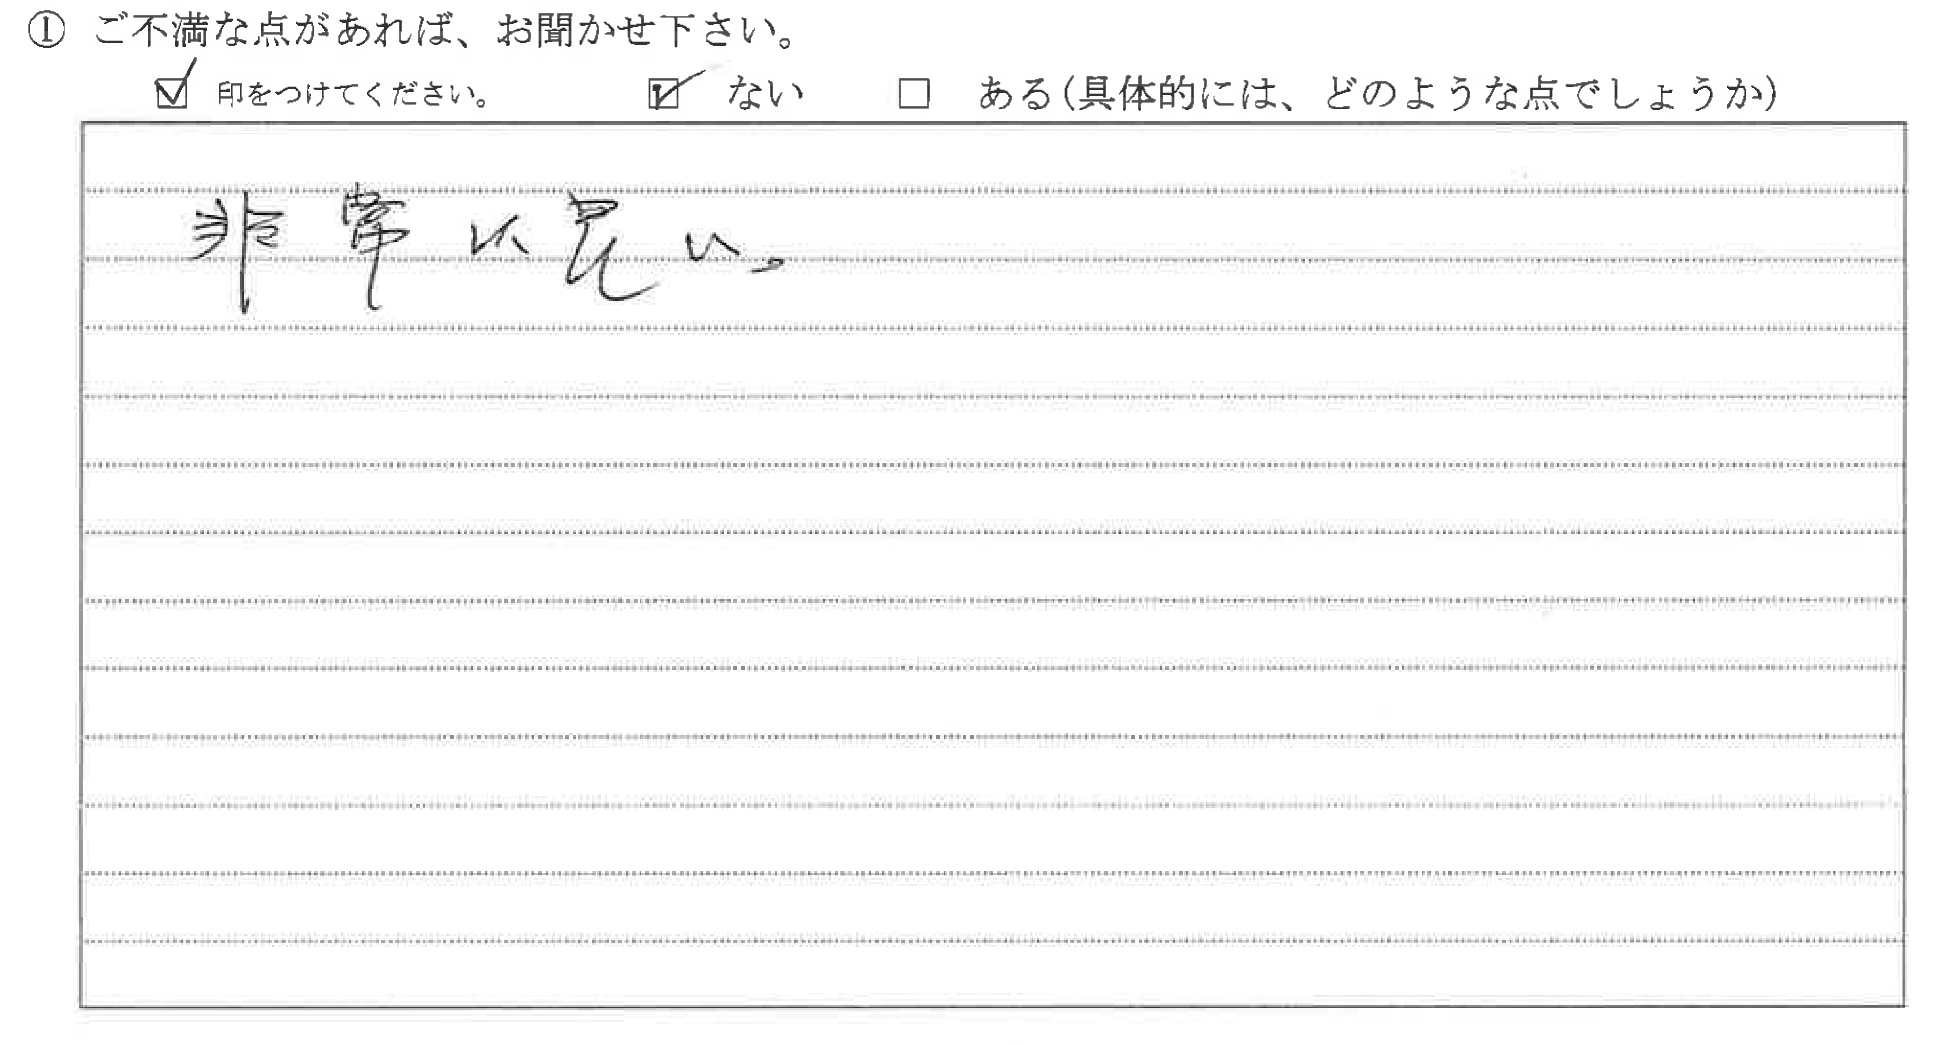 ① ご不満な点があれば、お聞かせ下さい。
☑ 印をつけてください。 ☑ ない □ ある(具体的には、どのような点でしょうか)
非常に良い。